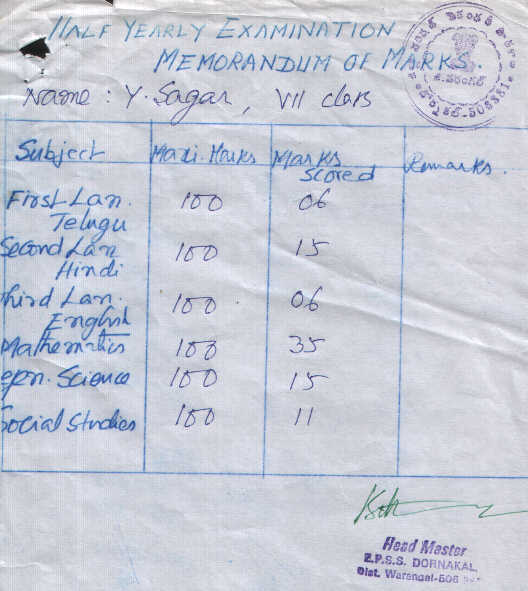 HALF YEARLY EXAMINATION
MEMORANDUM OF MARKS.
Name : Y. Sagar, VII class
Subject Maxi. Marks Marks Scored Remarks.
First Lan. 100 06
Telugu
Second Lan 100 15
Hindi
Third Lan. 100 06
English
Mathematics 100 35
Gen. Science 100 15
Social Studies 100 11
Head Master
Z.P.S.S. DORNAKAL,
Dist. Warangal-506